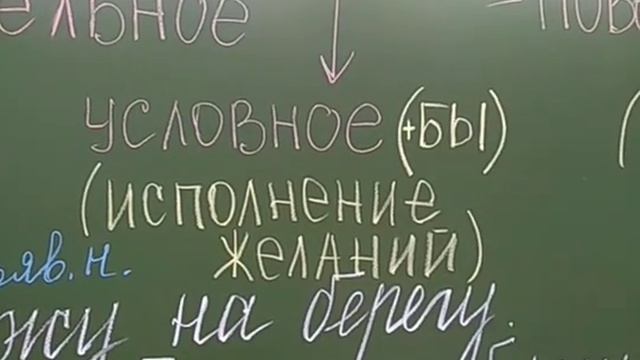 ельное
пове
условное (+бы)
(исполнение
желаний)
яв. н.
жу на берегу.